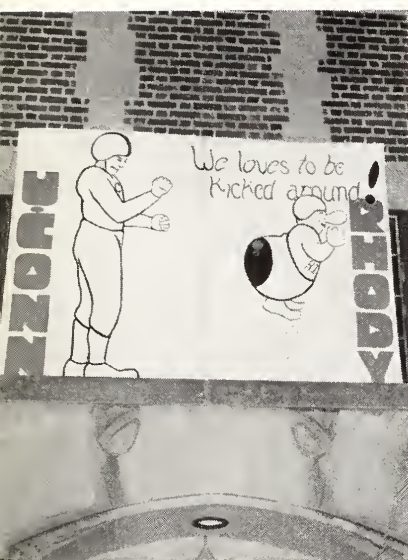 U-CONN
We loves to be
kicked around!
RHODY